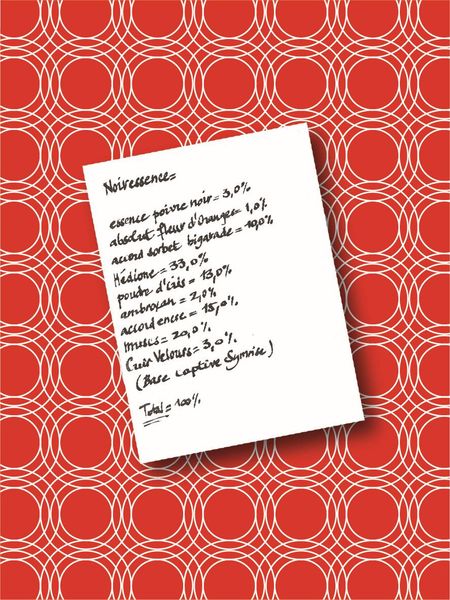 Noiressence=
essence poivre noir= 3,0%
absolut fleur d'Oranger= 1,0%
accord sorbet bigarade= 10,0%
Hédione= 33,0%
poudre d'iris= 13,0%
ambroxan= 2,0%
accord encre= 15,0%
muscs= 20,0%
Cuir Velours= 3,0%
(Base captive Symrise)
Total= 100%